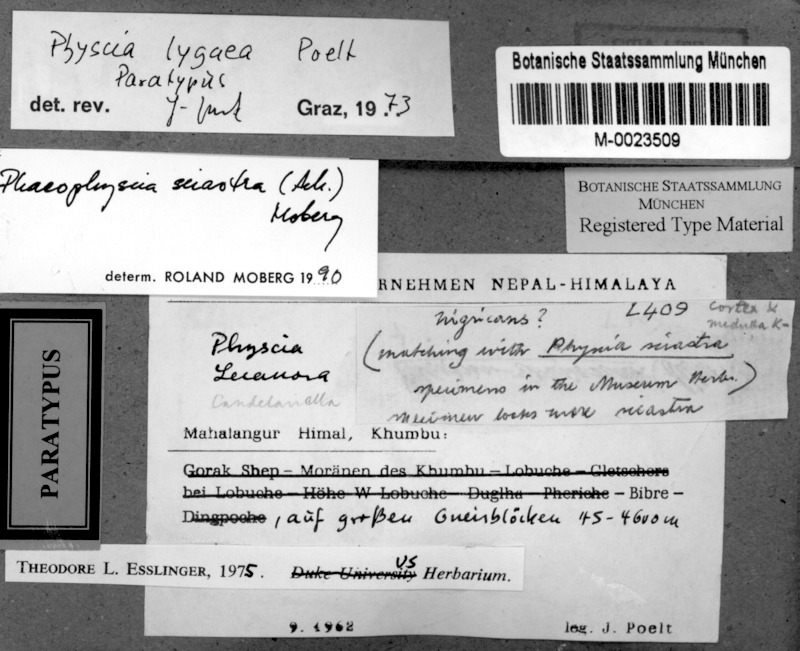 Physcia lygaea Poelt
Paratypus
det. rev. Graz, 1973
Botanische Staatssammlung München
M-0023509
BOTANISCHE STAATSSAMMLUNG
MÜNCHEN
Registered Type Material
Phaeophyscia sciastra (Ach.)
Moberg
determ. ROLAND MOBERG 1990
RNEHMEN NEPAL-HIMALAYA
Physcia
Lecanora
Candelariella
nigricans? L409 Cortex &
medulla K-
(matching with Physcia sciastra
specimens in the Museum Herb.)
specimen looks more sciastra
Mahalangur Himal, Khumbu:
Gorak Shep – Moränen des Khumbu – Lobuche – Gletschers
bei Lobuche – Höhe W Lobuche – Duglha – Pheriche – Bibre –
Dingpoche, auf großen Gneisblöcken 45-4600m
PARATYPUS
THEODORE L. ESSLINGER, 1975. Duke University US Herbarium.
9. 1962 leg. J. Poelt